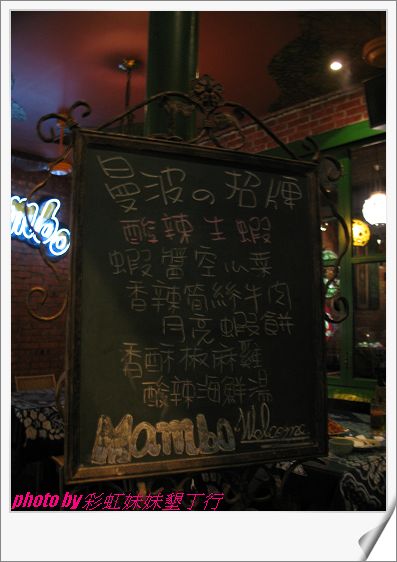 曼波の招牌
酸辣生蝦
蝦醬空心菜
香辣筒絲牛肉
月亮蝦餅
香酥椒麻雞
酸辣海鮮湯
Mambo Welcome
photo by 彩虹妹妹墾丁行